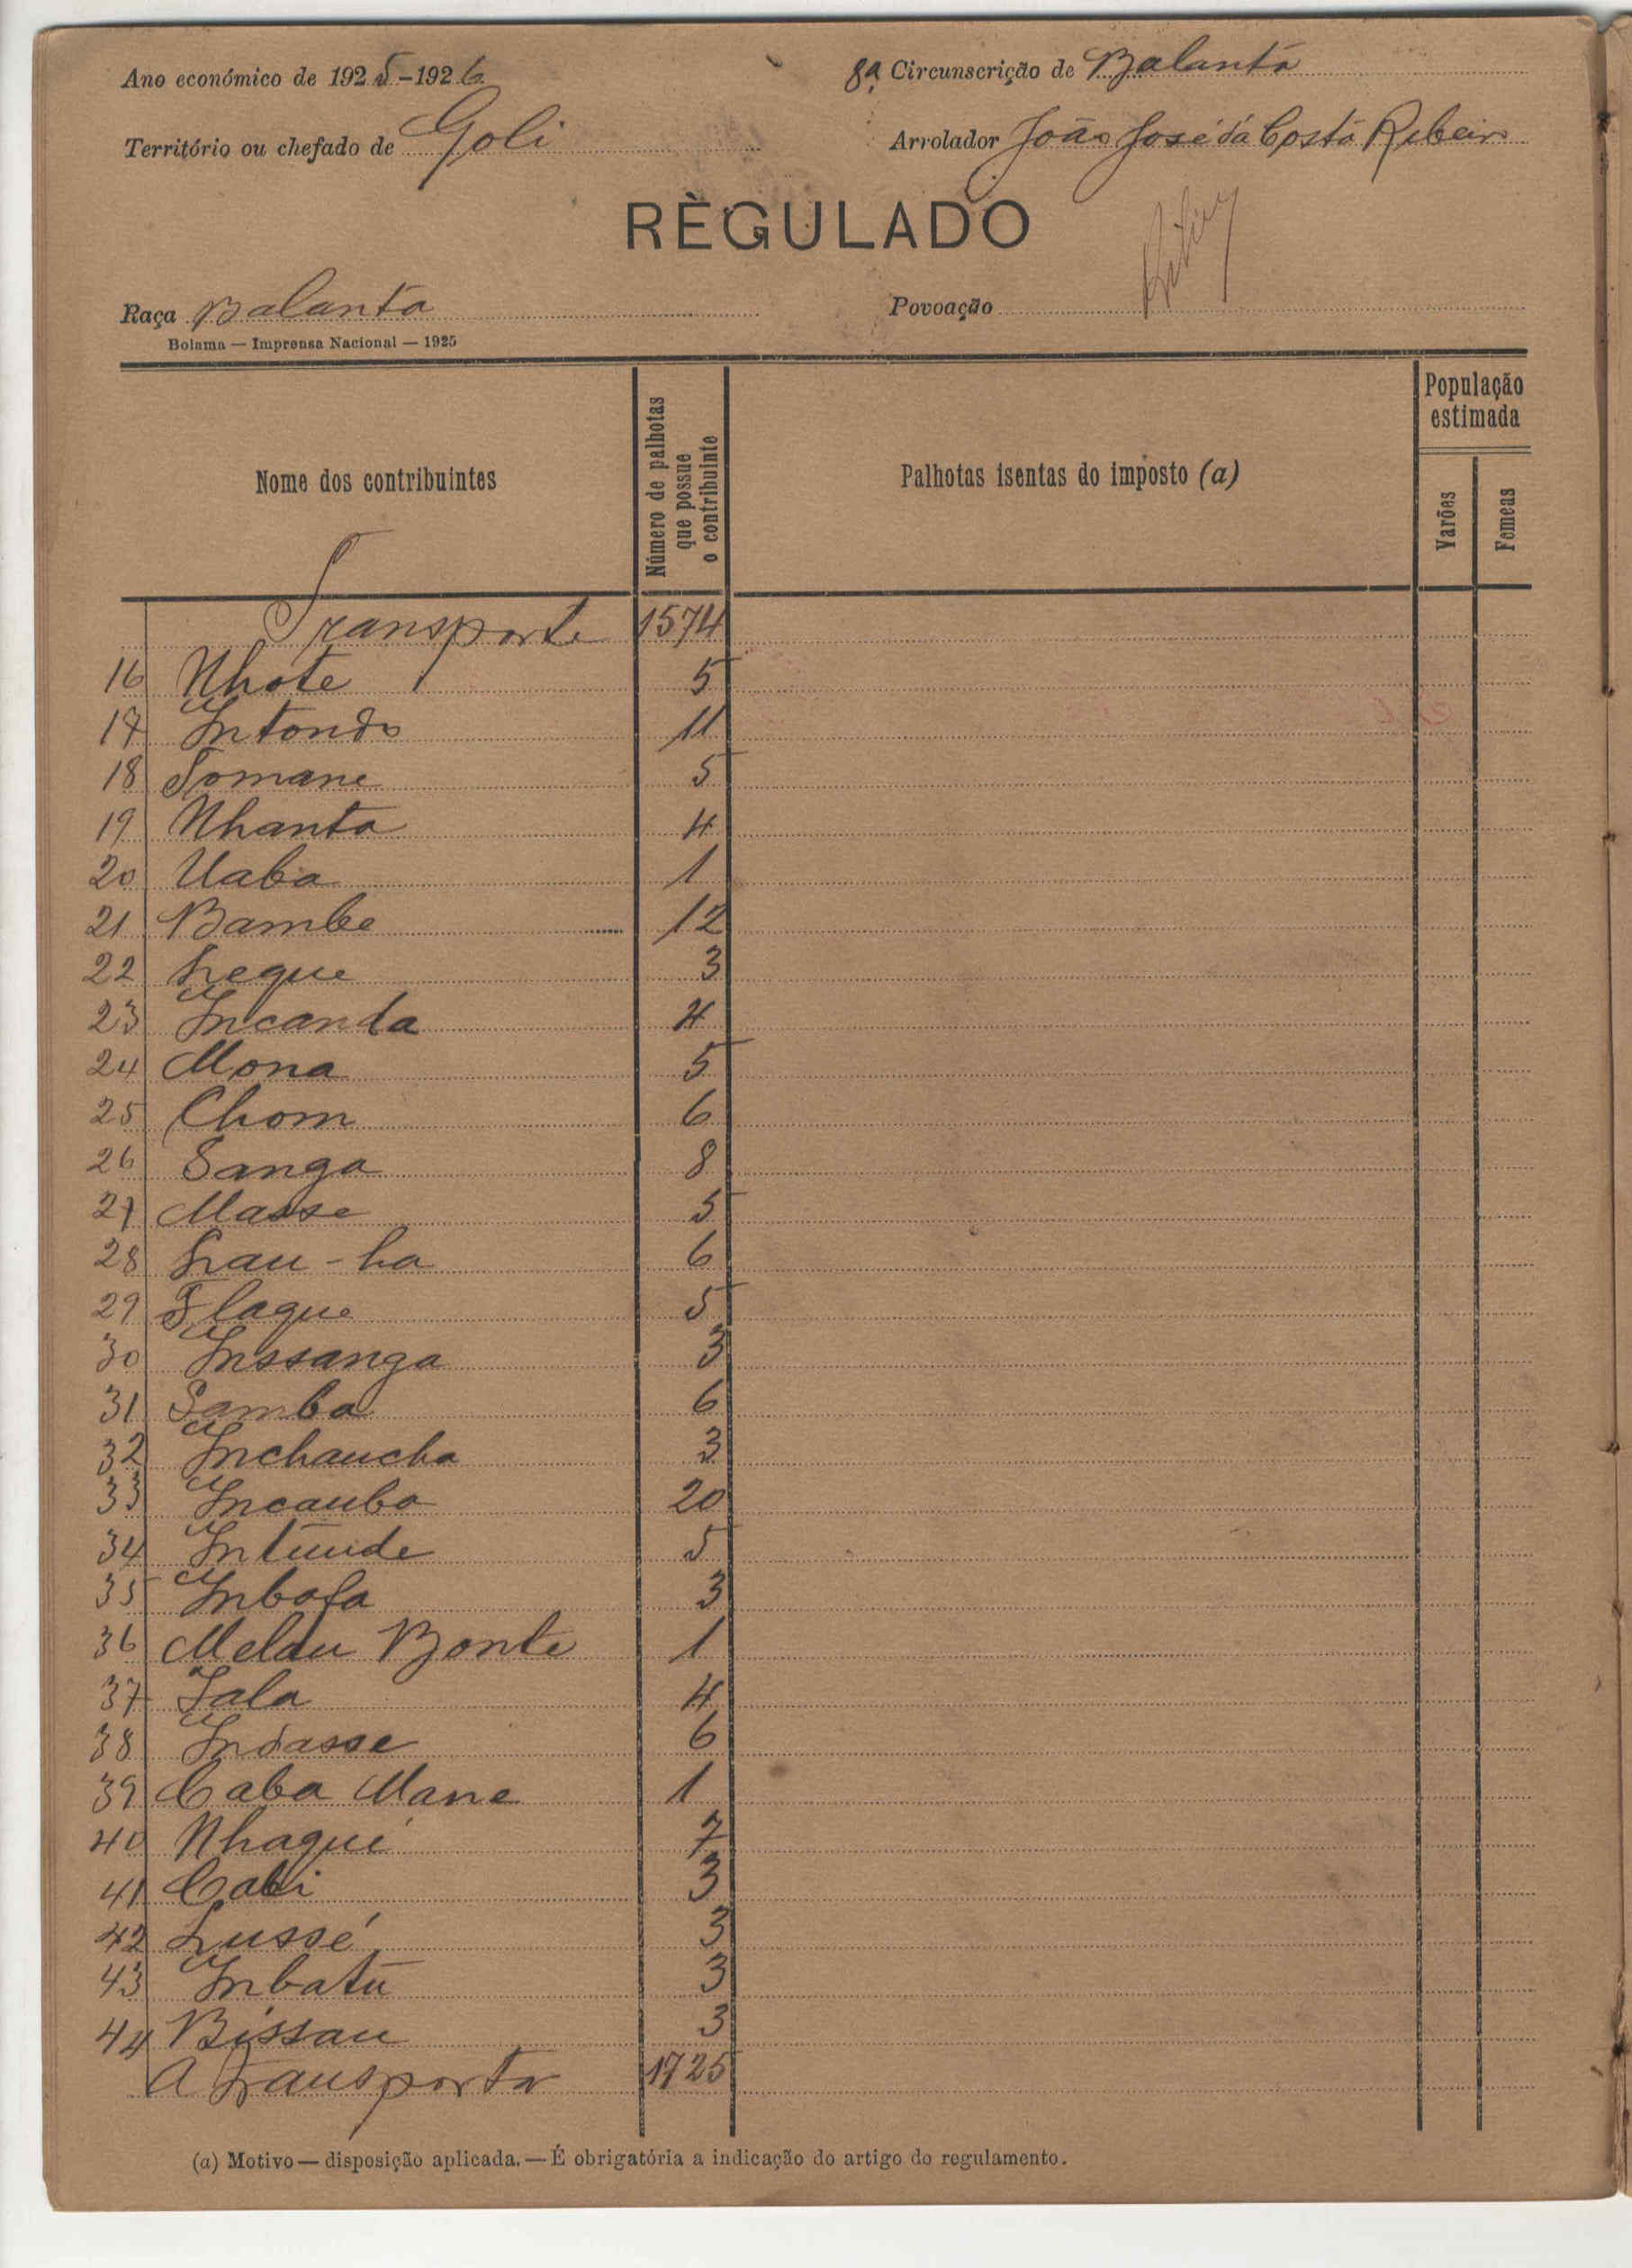 Ano económico de 1925-1926
8ª Circunscrição de Balanta
Território ou chefado de Goli
Arrolador João José da Costa Ribeiro
RÈGULADO
Raça Balanta
Povoação
Bolama — Imprensa Nacional — 1925
Nome dos contribuintes
Número de palhotas que possue o contribuinte
Palhotas isentas do imposto (a)
População estimada
Varões
Femeas
Transporte 1574
16 Nhote 5
17 Intondo 11
18 Somane 5
19 Nhanta 4
20 Uaba 1
21 Bambe 12
22 Leque 3
23 Incanda 4
24 Mona 5
25 Chom 6
26 Sanga 8
27 Masse 5
28 Lau-ha 6
29 Flaque 5
30 Inssanga 3
31 Samba 6
32 Inchaucha 3
33 Incauba 20
34 Intunde 5
35 Inbofa 3
36 Meldu Bonte 1
37 Iala 4
38 Indasse 6
39 Caba Mane 1
40 Nhaqui 7
41 Cabi 3
42 Lussé 3
43 Inbatu 3
44 Bissau 3
A transporta 1725
(a) Motivo — disposição aplicada. — É obrigatória a indicação do artigo do regulamento.